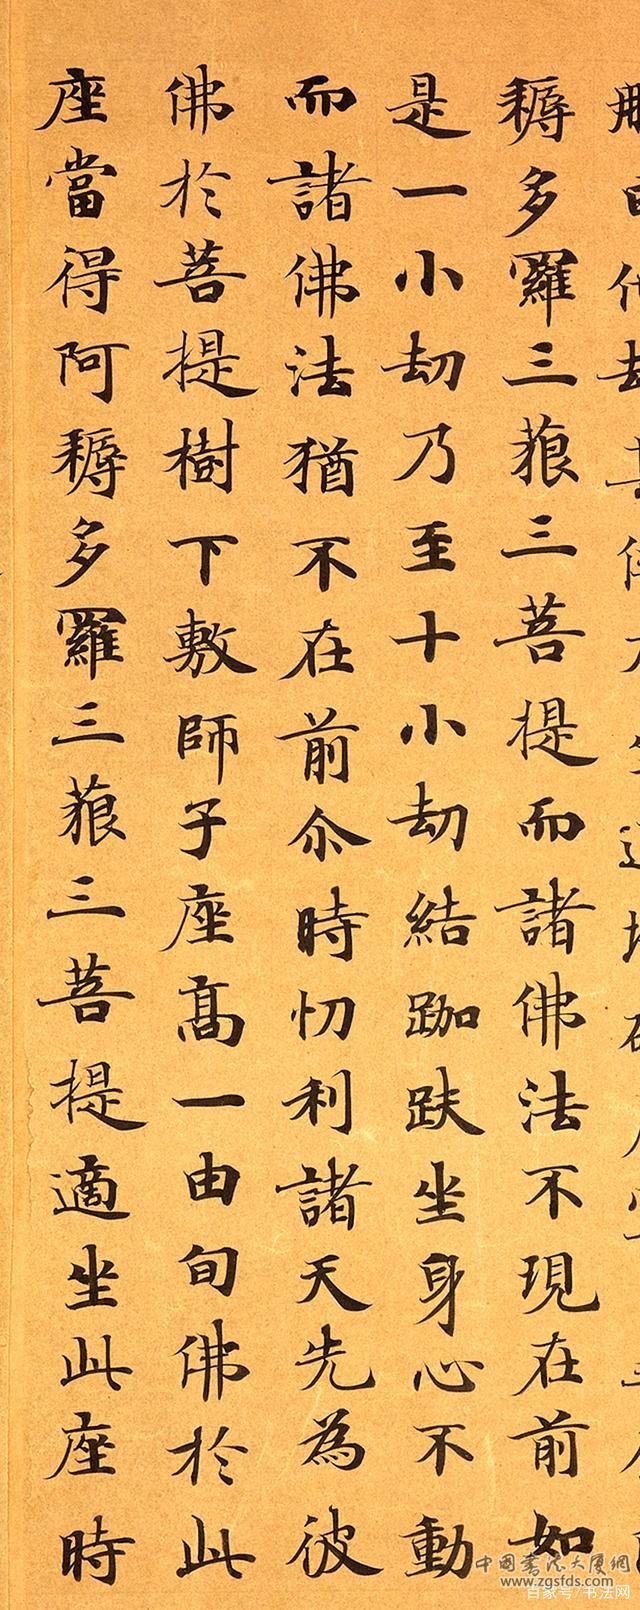 耨多羅三藐三菩提而諸佛法不現在前如
是一小劫乃至十小劫結跏趺坐身心不動
而諸佛法猶不在前尒時忉利諸天先為彼
佛於菩提樹下敷師子座髙一由旬佛於此
座當得阿耨多羅三藐三菩提適坐此座時
中國書法大厦網
www.zgsfds.com
百家号/书法网